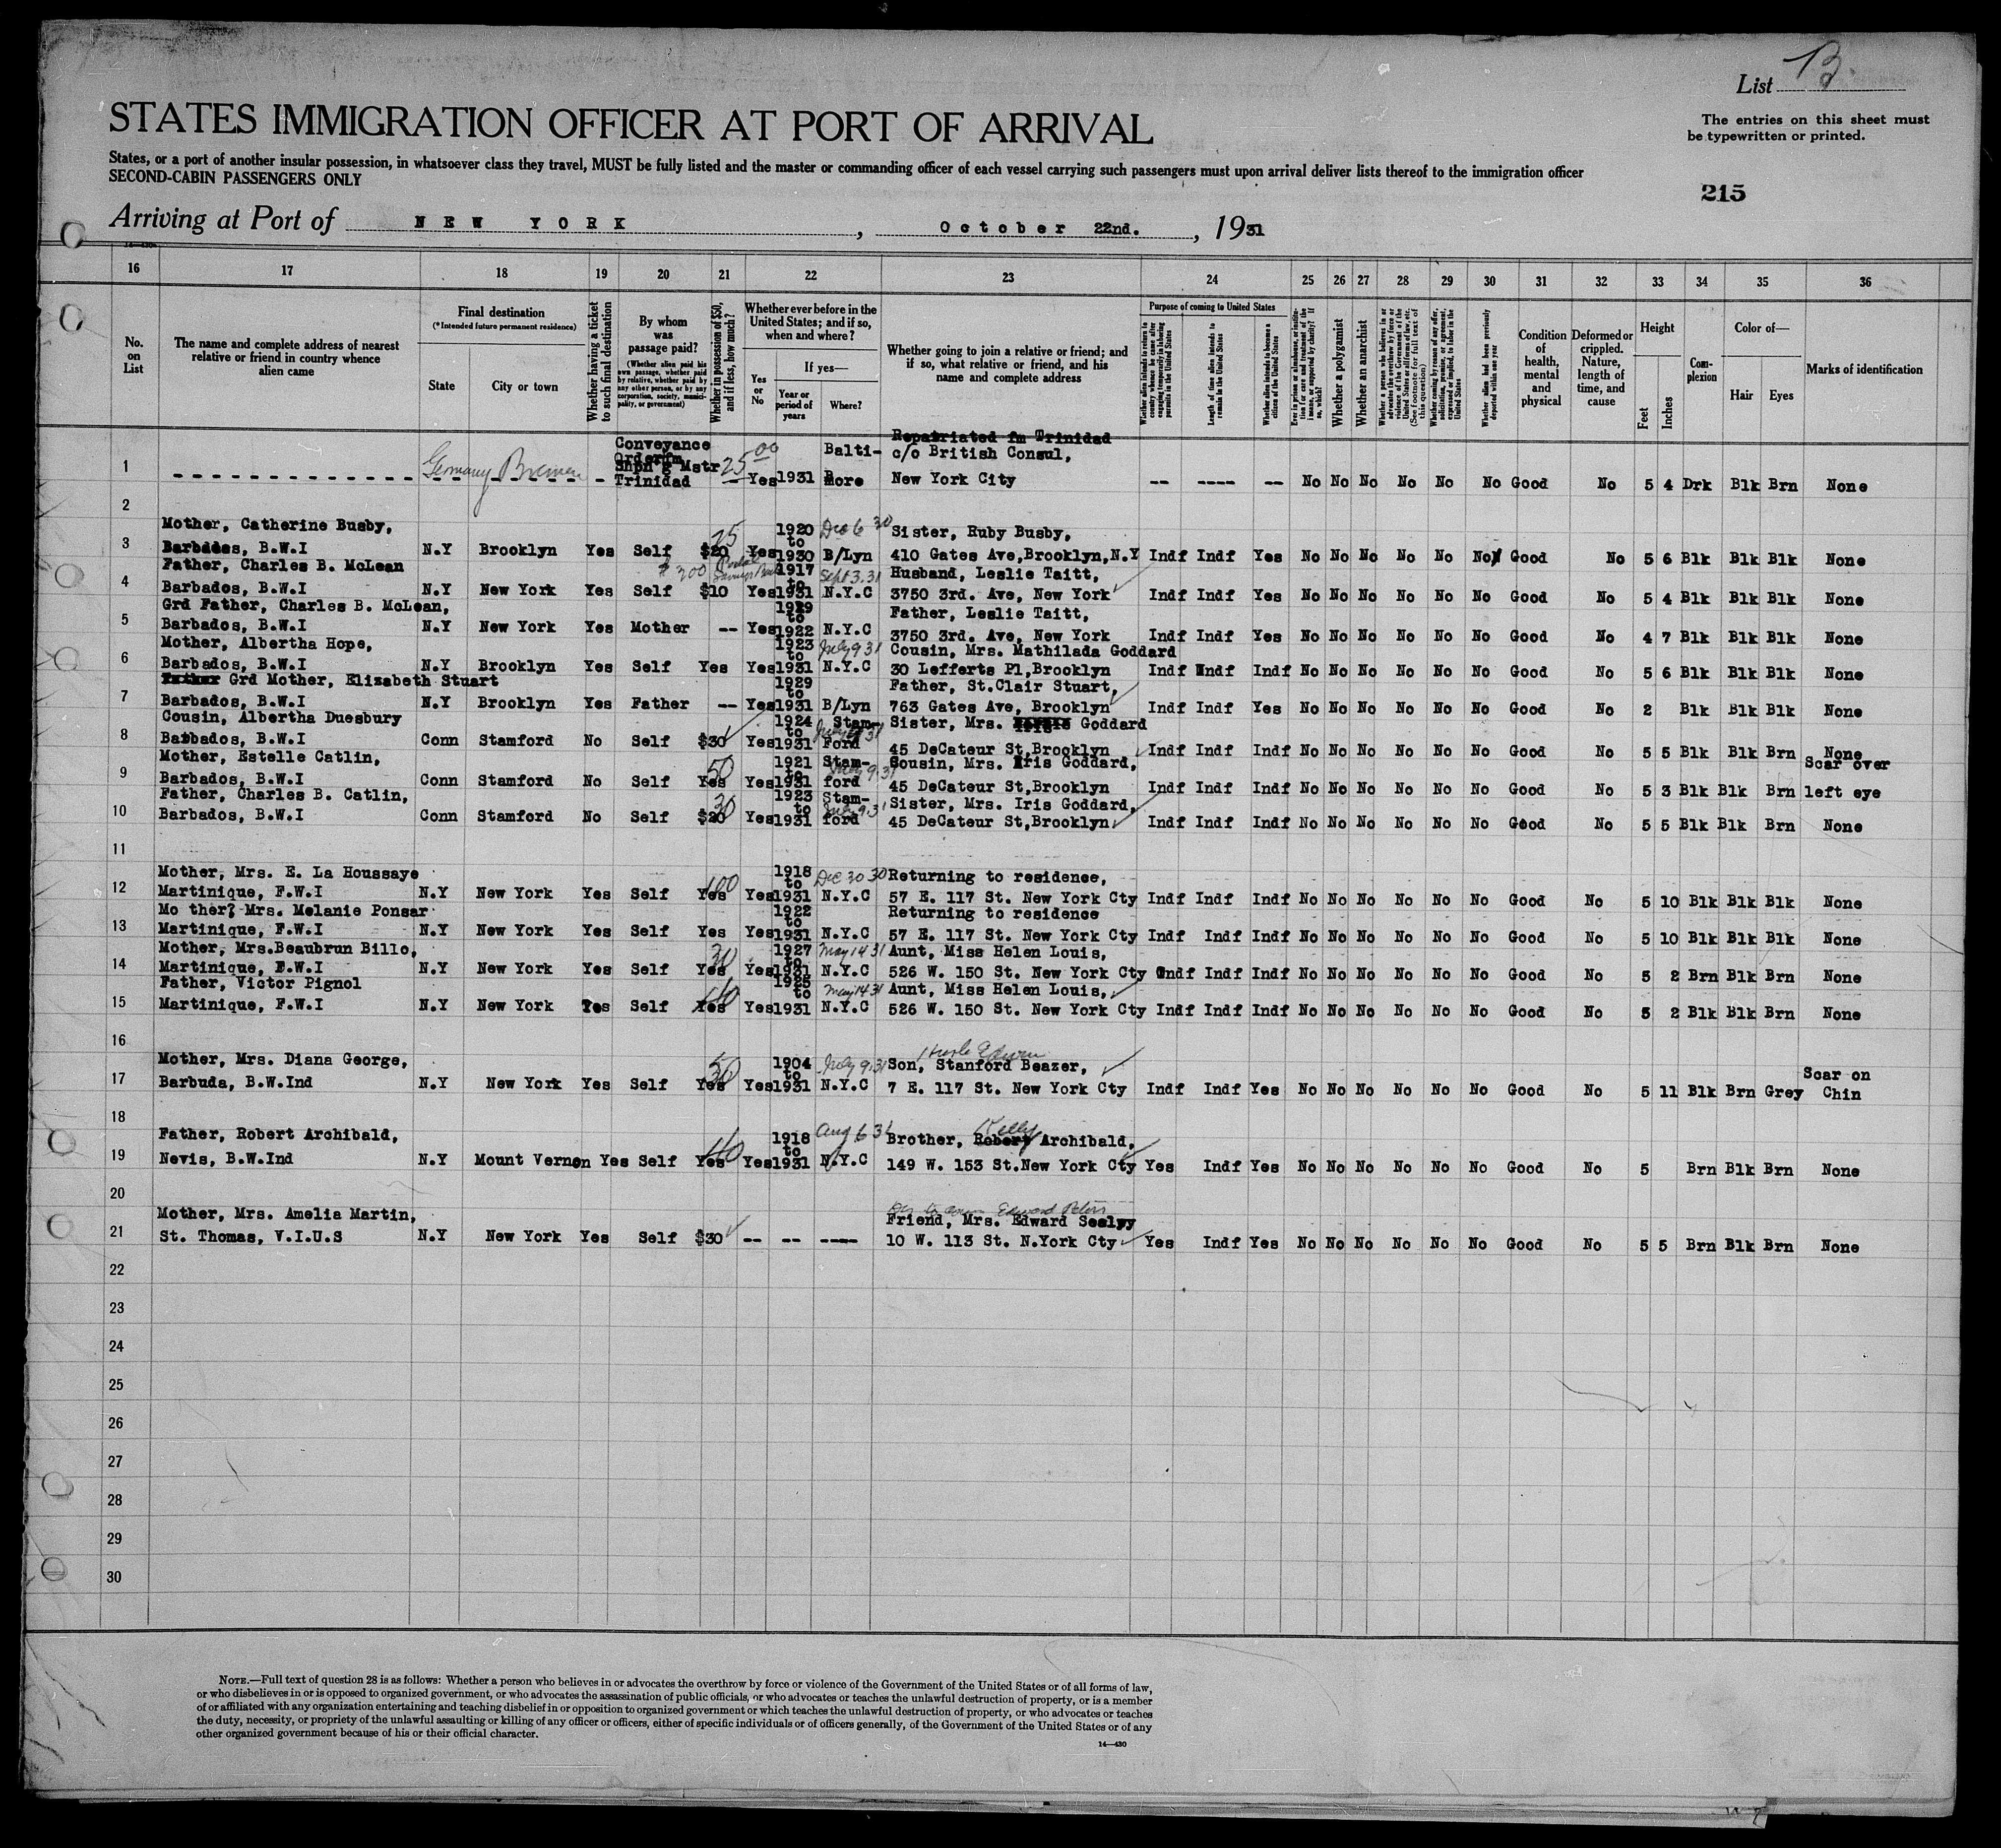 List 13.
STATES IMMIGRATION OFFICER AT PORT OF ARRIVAL
The entries on this sheet must
be typewritten or printed.
States, or a port of another insular possession, in whatsoever class they travel, MUST be fully listed and the master or commanding officer of each vessel carrying such passengers must upon arrival deliver lists thereof to the immigration officer
SECOND-CABIN PASSENGERS ONLY
215
Arriving at Port of NEW YORK, October 22nd., 1931
16 17 18 19 20 21 22 23 24 25 26 27 28 29 30 31 32 33 34 35 36
No. on List
The name and complete address of nearest relative or friend in country whence alien came
Final destination
(*Intended future permanent residence)
State
City or town
Whether having a ticket to such final destination
By whom was passage paid?
(Whether alien paid his own passage, whether paid by relative, whether paid by any other person, or by any corporation, society, municipality, or government)
Whether in possession of $50, and if less, how much?
Whether ever before in the United States; and if so, when and where?
Yes or No
If yes—
Year or period of years
Where?
Whether going to join a relative or friend; and if so, what relative or friend, and his name and complete address
Purpose of coming to United States
Whether alien intends to return to country whence he came after engaging temporarily in laboring pursuits in the United States
Length of time alien intends to remain in the United States
Whether alien intends to become a citizen of the United States
Ever in prison or almshouse, or institution for care and treatment of the insane, or supported by charity? If so, which?
Whether a polygamist
Whether an anarchist
Whether a person who believes in or advocates the overthrow by force or violence of the Government of the United States or all forms of law, etc. (See footnote for full text of this question)
Whether coming by reason of any offer, solicitation, promise, or agreement, expressed or implied, to labor in the United States
Whether alien had been previously deported within one year
Condition of health, mental and physical
Deformed or crippled. Nature, length of time, and cause
Height
Feet
Inches
Complexion
Color of—
Hair
Eyes
Marks of identification
Conveyance Balti- Repatriated fm Trinidad
Order fm 25 00 c/o British Consul,
1 Germany Bremen Shpn'g Mstr Trinidad Yes 1931 more New York City -- ---- -- No No No No No No Good No 5 4 Drk Blk Brn None
2
Mother, Catherine Busby, 25 1920 to Dec 6 30 Sister, Ruby Busby,
3 Barbados, B.W.I N.Y Brooklyn Yes Self $20 Yes 1930 B/Lyn 410 Gates Ave, Brooklyn, N.Y Indf Indf Yes No No No No No No Good No 5 6 Blk Blk Blk None
Father, Charles B. McLean $300 Postal Savings Bank 1917 to Sept 3.31 Husband, Leslie Taitt,
4 Barbados, B.W.I N.Y New York Yes Self $10 Yes 1931 N.Y.C 3750 3rd. Ave, New York Indf Indf Yes No No No No No No Good No 5 4 Blk Blk Blk None
Grd Father, Charles B. McLean, to Father, Leslie Taitt,
5 Barbados, B.W.I N.Y New York Yes Mother -- Yes 1922 N.Y.C 3750 3rd. Ave, New York Indf Indf Yes No No No No No No Good No 4 7 Blk Blk Blk None
Mother, Albertha Hope, 1923 to July 9 31 Cousin, Mrs. Mathilada Goddard
6 Barbados, B.W.I N.Y Brooklyn Yes Self Yes Yes 1931 N.Y.C 30 Lefferts Pl, Brooklyn Indf Undf Indf No No No No No No Good No 5 6 Blk Blk Blk None
Father Grd Mother, Elizabeth Stuart 1929 to Father, St.Clair Stuart,
7 Barbados, B.W.I N.Y Brooklyn Yes Father -- Yes 1931 B/Lyn 763 Gates Ave, Brooklyn Indf Indf Yes No No No No No No Good No 2 Blk Blk Blk None
Cousin, Albertha Duesbury 1924 to Stam- Sister, Mrs. Iris Goddard
8 Barbados, B.W.I Conn Stamford No Self $30 Yes 1931 Ford 45 DeCateur St, Brooklyn Indf Indf Indf No No No No No No Good No 5 5 Blk Blk Brn None
Mother, Estelle Catlin, 50 1921 to Stam- July 9.31 Cousin, Mrs. Iris Goddard, Scar over
9 Barbados, B.W.I Conn Stamford No Self Yes Yes 1931 ford 45 DeCateur St, Brooklyn Indf Indf Indf No No No No No No Good No 5 3 Blk Blk Brn left eye
Father, Charles B. Catlin, 30 1923 to Stam- July 9.31 Sister, Mrs. Iris Goddard,
10 Barbados, B.W.I Conn Stamford No Self $20 Yes 1931 ford 45 DeCateur St, Brooklyn Indf Indf Indf No No No No No No Good No 5 5 Blk Blk Brn None
11
Mother, Mrs. E. La Houssaye 100 1918 to Dec 30 30 Returning to residence,
12 Martinique, F.W.I N.Y New York Yes Self Yes Yes 1931 N.Y.C 57 E. 117 St. New York Cty Indf Indf Indf No No No No No No Good No 5 10 Blk Blk Blk None
Mo ther? Mrs. Melanie Ponsar 1922 to Returning to residence
13 Martinique, F.W.I N.Y New York Yes Self Yes Yes 1931 N.Y.C 57 E. 117 St. New York Cty Indf Indf Indf No No No No No No Good No 5 10 Blk Blk Blk None
Mother, Mrs.Beaubrun Billo, 30 1927 to May 14 31 Aunt, Miss Helen Louis,
14 Martinique, F.W.I N.Y New York Yes Self Yes Yes 1931 N.Y.C 526 W. 150 St. New York Cty Undf Indf Indf No No No No No No Good No 5 2 Brn Blk Brn None
Father, Victor Pignol 40 1925 to May 14 31 Aunt, Miss Helen Louis,
15 Martinique, F.W.I N.Y New York Yes Self Yes Yes 1931 N.Y.C 526 W. 150 St. New York Cty Indf Indf Indf No No No No No No Good No 5 2 Blk Blk Brn None
16
Mother, Mrs. Diana George, 50 1904 to July 9.31 Son, Stanford Beazer, Scar on
17 Barbuda, B.W.Ind N.Y New York Yes Self Yes Yes 1931 N.Y.C 7 E. 117 St. New York Cty Indf Indf Yes No No No No No No Good No 5 11 Blk Brn Grey Chin
18
Father, Robert Archibald, 40 1918 to Aug 6 31 Brother, Robert Kelly Archibald,
19 Nevis, B.W.Ind N.Y Mount Vernon Yes Self Yes Yes 1931 N.Y.C 149 W. 153 St.New York Cty Yes Indf Yes No No No No No No Good No 5 Brn Blk Brn None
20
Mother, Mrs. Amelia Martin, Friend, Mrs. Edward Sealyy
21 St. Thomas, V.I.U.S N.Y New York Yes Self $30 -- -- ---- 10 W. 113 St. N.York Cty Yes Indf Yes No No No No No No Good No 5 5 Brn Blk Brn None
22
23
24
25
26
27
28
29
30
NOTE.—Full text of question 28 is as follows: Whether a person who believes in or advocates the overthrow by force or violence of the Government of the United States or of all forms of law,
or who disbelieves in or is opposed to organized government, or who advocates the assassination of public officials, or who advocates or teaches the unlawful destruction of property, or is a member
of or affiliated with any organization entertaining and teaching disbelief in or opposition to organized government or which teaches the unlawful destruction of property, or who advocates or teaches
the duty, necessity, or propriety of the unlawful assaulting or killing of any officer or officers, either of specific individuals or of officers generally, of the Government of the United States or of any
other organized government because of his or their official character.
14—430